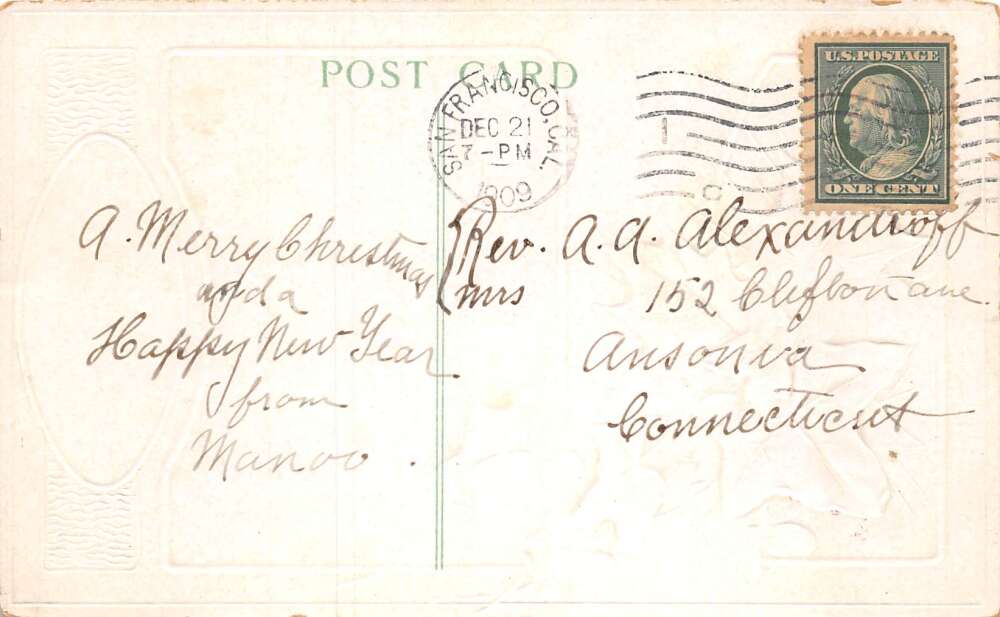 POST CARD
SAN FRANCISCO, CAL.
DEC 21
7-PM
1909
U.S. POSTAGE
ONE CENT
A. Merry Christmas
and a
Happy New Year
from
Manoo.
Rev. A. A. Alexandroff
Mrs
152 Clifton ave.
Ansonia
Connecticut